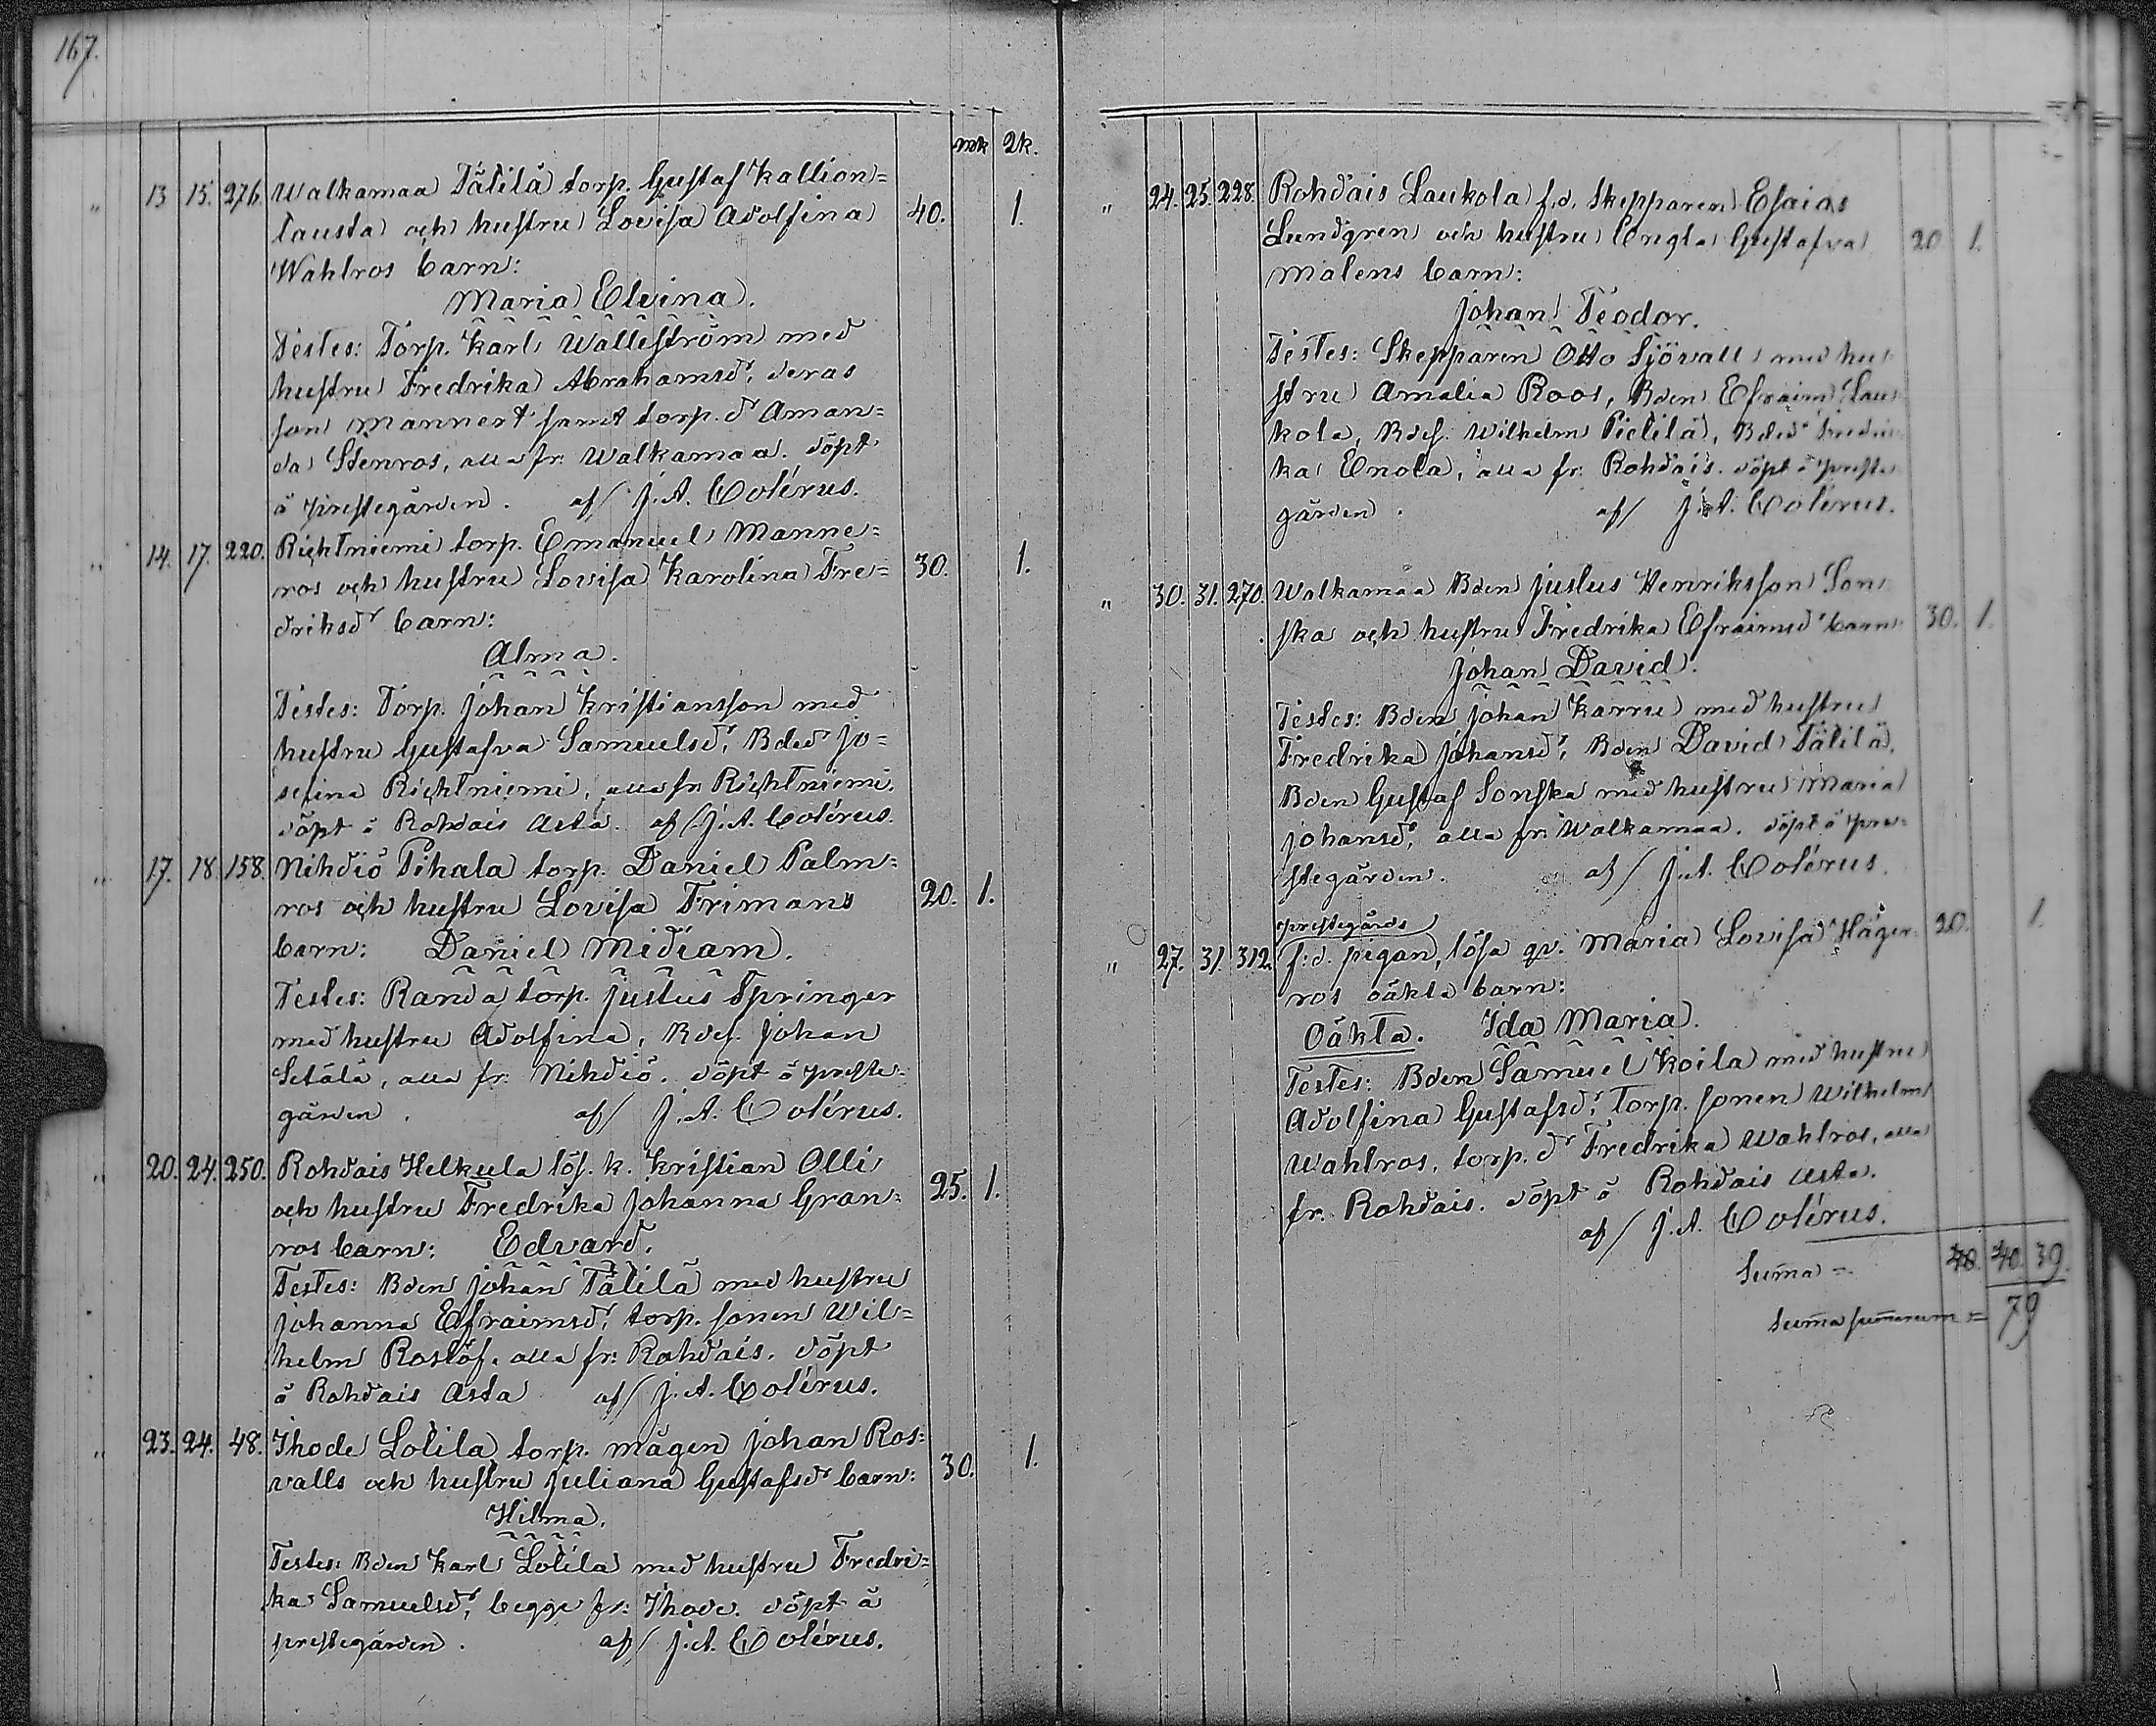 167.
mk 2k.
" 13 15. 276. Walkamaa Tätilä torp. Gustaf Kallion=
tausta och hustru Lovisa Adolfina 40. 1.
Wahlros barn:
Maria Elvina.
Testes: Torp. Karl Walleström med
hustru Fredrika Abrahamsdr, deras
son Mannert samt torp. dr Aman=
da Stenros, alla fr. Walkamaa. döpt
å prestegården. af/ J. A. Colérus.
" 14. 17. 220. Richtniemi torp. Emanuel Manne=
ros och hustru Lovisa Karolina Fre= 30. 1.
driksdr barn:
Alma.
Testes: Torp. Johan Kristiansson med
hustru Gustafva Samuelsdr, Bdedr Jo=
sefina Richtniemi, alla fr. Richtniemi.
döpt å Rohdais Asta. af/ J. A. Colérus.
" 17. 18. 158. Nihdiö Pihala torp. Daniel Palm=
ros och hustru Lovisa Frimans 20. 1.
barn: Daniel Midiam.
Testes: Randa torp. Justus Springer
med hustru Adolfina, Bdes. Johan
Setälä, alla fr. Nihdiö. döpt å preste=
gården. af/ J. A. Colérus.
" 20. 24. 250. Rohdais Helkula lös. k. Kristian Olli
och hustru Fredrika Johanna Gran= 25. 1.
ros barn: Edvard.
Testes: Bden Johan Tätilä med hustru
Johanna Efraimsdr, torp. sonen Wil=
helm Roslöf, alla fr: Rohdais. döpt
å Rohdais Asta af/ J. A. Colérus.
" 23. 24. 48. Ihode Lotila torp. mågen Johan Ros=
valls och hustru Juliana Gustafsdr barn: 30. 1.
Hilma.
Testes: Bden Karl Lotila med hustru Fredri=
ka Samuelsdr, begge fr: Ihode. döpt å
prestegården. af/ J. A. Colérus.
" 24. 25. 228. Rohdais Laukola f.d. Skepparen Esaias
Lundgren och hustru Engla Gustafva 20 1.
Malens barn:
Johan Teodor.
Testes: Skepparen Otto Sjövall med hu=
stru Amalia Roos, Bden Efraim Lau=
kola, Bdes. Wilhelm Pietilä, Bdedr Fredri=
ka Enola, alla fr. Rohdais. döpt å preste=
gården. af/ J. A. Colérus.
" 30. 31. 270. Walkamaa Bden Justus Henriksson Son=
ska och hustru Fredrika Efraimsdr barn: 30. 1.
Johan David.
Testes: Bden Johan Karru med hustru
Fredrika Johansdr, Bden David Tätilä,
Bden Gustaf Sonska med hustru Maria
Johansdr, alla fr: Walkamaa. döpt å pre=
stegården. af/ J. A. Colérus.
prestegårds
" 27. 31. 312. f:d. pigan, lösa qv. Maria Lovisa Häger= 20. 1.
ros oäkta barn:
Oäkta. Ida Maria.
Testes: Bden Samuel Koila med hustru
Adolfina Gustafsdr, Torp. sonen Wilhelm
Wahlros, torp. dr Fredrika Wahlros, alla
fr. Rohdais. döpt å Rohdais Asta.
af/ J. A. Colérus.
Summa = 40. 39.
Summa summarum = 79